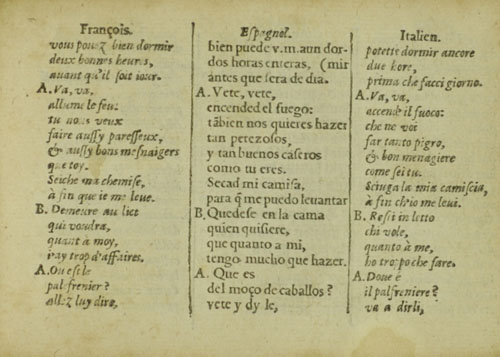 François.
vous pouez bien dormir
deux bonnes heures,
auant qu'il soit iour.
A. Va, va,
allume le feu:
tu nous veux
faire aussy paresseux,
& aussy bons mesnaigers
que toy.
Seiche ma chemise,
à fin que ie me leue.
B. Demeure au lict
qui voudra,
quant à moy,
i'ay trop d'affaires.
A. Ou est le
palefrenier?
allez luy dire,
Espagnol.
bien puede v. m. aun dor-
dos horas enteras, (mir
antes que sera de dia.
A. Vete, vete,
encended el fuego:
tābien nos quieres hazer
tan perezosos,
y tan buenos caseros
como tu eres.
Secad mi camisa,
para q̄ me puedo leuantar
B. Quedese en la cama
quien quisiere,
que quanto a mi,
tengo mucho que hazer.
A. Que es
del moço de caballos?
vete y dy le,
Italien.
potette dormir ancore
due hore,
prima che facci giorno.
A. Va, va,
accendi il fuoco:
che ne voi
far tanto pigro,
& bon menagiere
come sei tu.
Sciuga la mia camiscia,
à fin ch'io me leui.
B. Resti in letto
chi vole,
quanto à me,
ho tropo che fare.
A. Doue è
il palfreniere?
va a dirli,